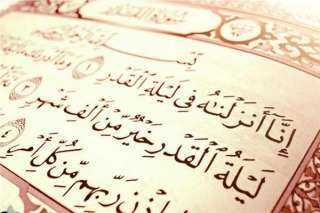 سُورَةُ الْقَدْرِ
بِسْمِ
إِنَّآ أَنزَلْنَٰهُ فِى لَيْلَةِ ٱلْقَدْرِ ١ وَمَآ
لَيْلَةُ ٱلْقَدْرِ خَيْرٌ مِّنْ أَلْفِ شَهْرٍ ٣
رَبِّهِم مِّن كُلِّ أَمْرٍ ٤